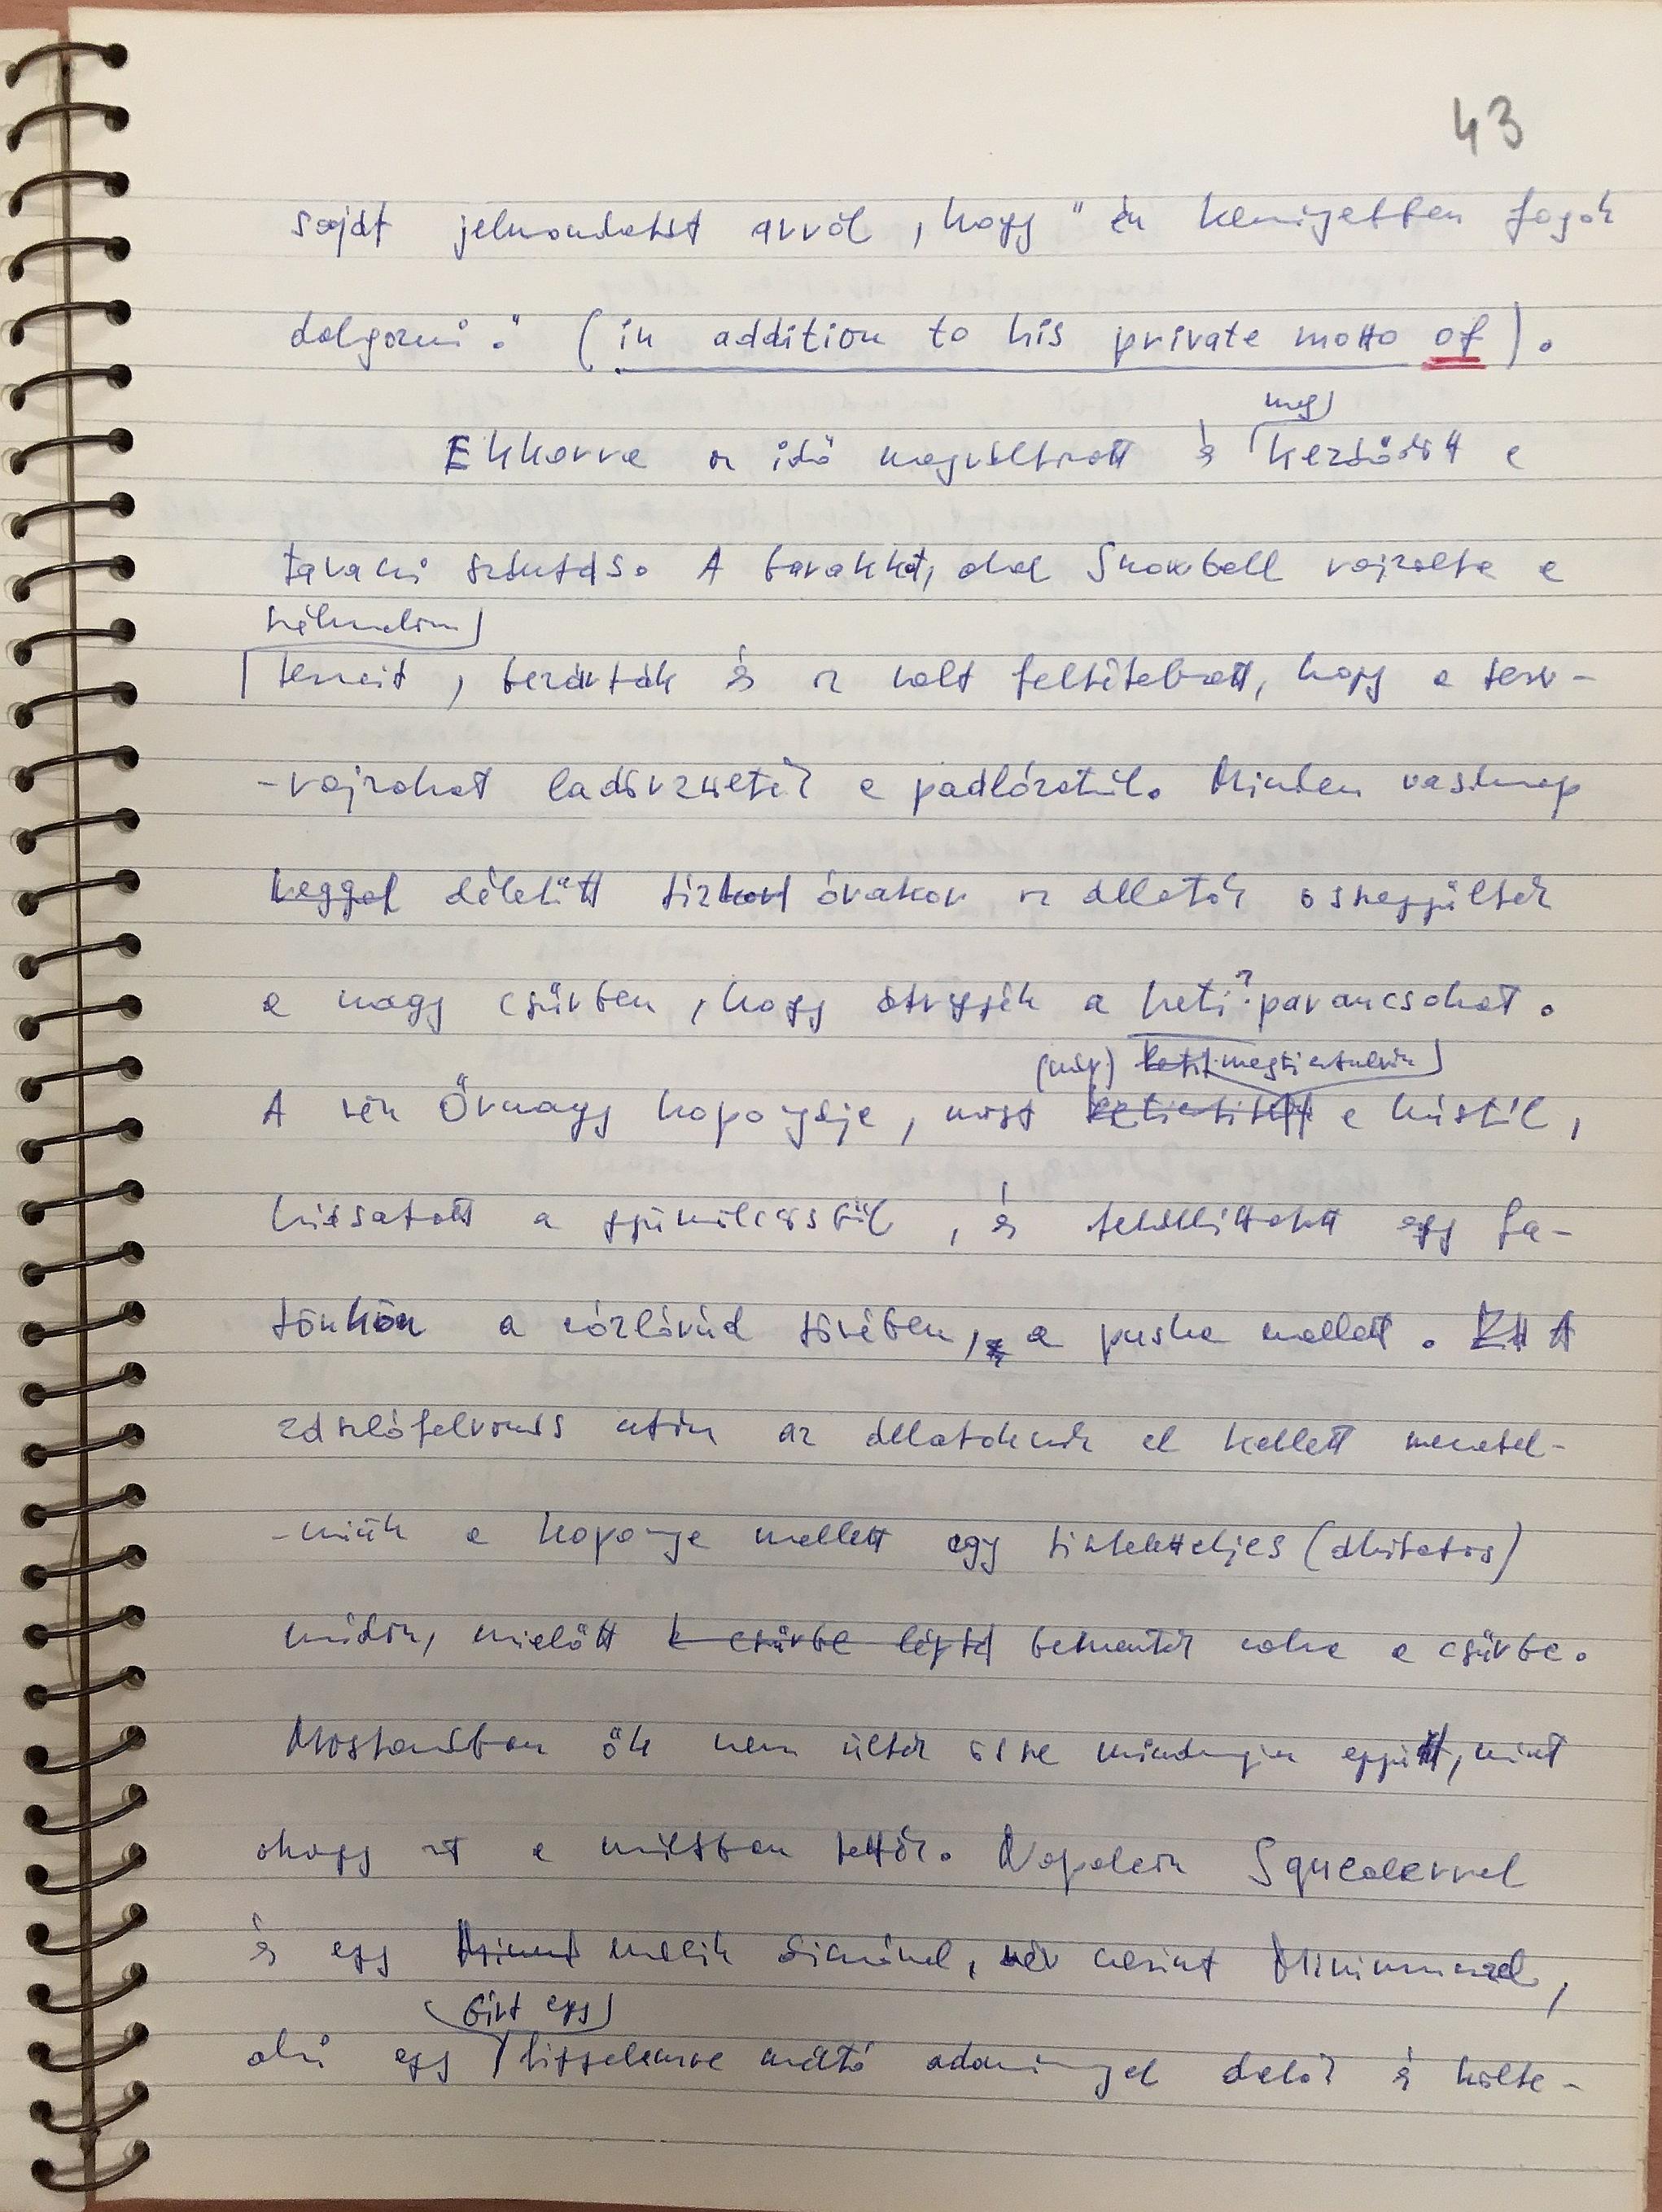 43
saját jelmondatát arról, hogy "én keményebben fogok
dolgozni." (in addition to his private motto of).
meg
Ekkorra az idő megváltozott és kezdődött a
tavaszi szántás. A barakkot, ahol Snowball rajzolta a
szélmalom
terveit, bezárták és az volt feltételezett, hogy a terv-
-rajzokat ledörzsölték a padlózatról. Minden vasárnap
reggel délelőtt tíz órakor az állatok összegyűltek
a nagy csűrben, hogy átvegyék a heti? parancsokat.
(már) megtisztulván
A vén Őrnagy koponyája, most a hústól,
kiásatott a gyümölcsösből, és felállíttatott egy fa-
tönkön a zászlórúd tövében, a puska mellett. A
zászlófelvonás után az állatoknak el kellett menetel-
-niük a koponya mellett egy tiszteletteljes (áhitatos)
módon, mielőtt a csűrbe léptek bementek volna a csűrbe.
Mostanában ők nem ültek össze mindnyájan együtt, mint
ahogy azt a múltban tették. Napoleon Squealerrel
és egy másik disznóval, név szerint Minimusszal,
bírt egy
aki egy figyelemre méltó adománnyal dalok és költe-